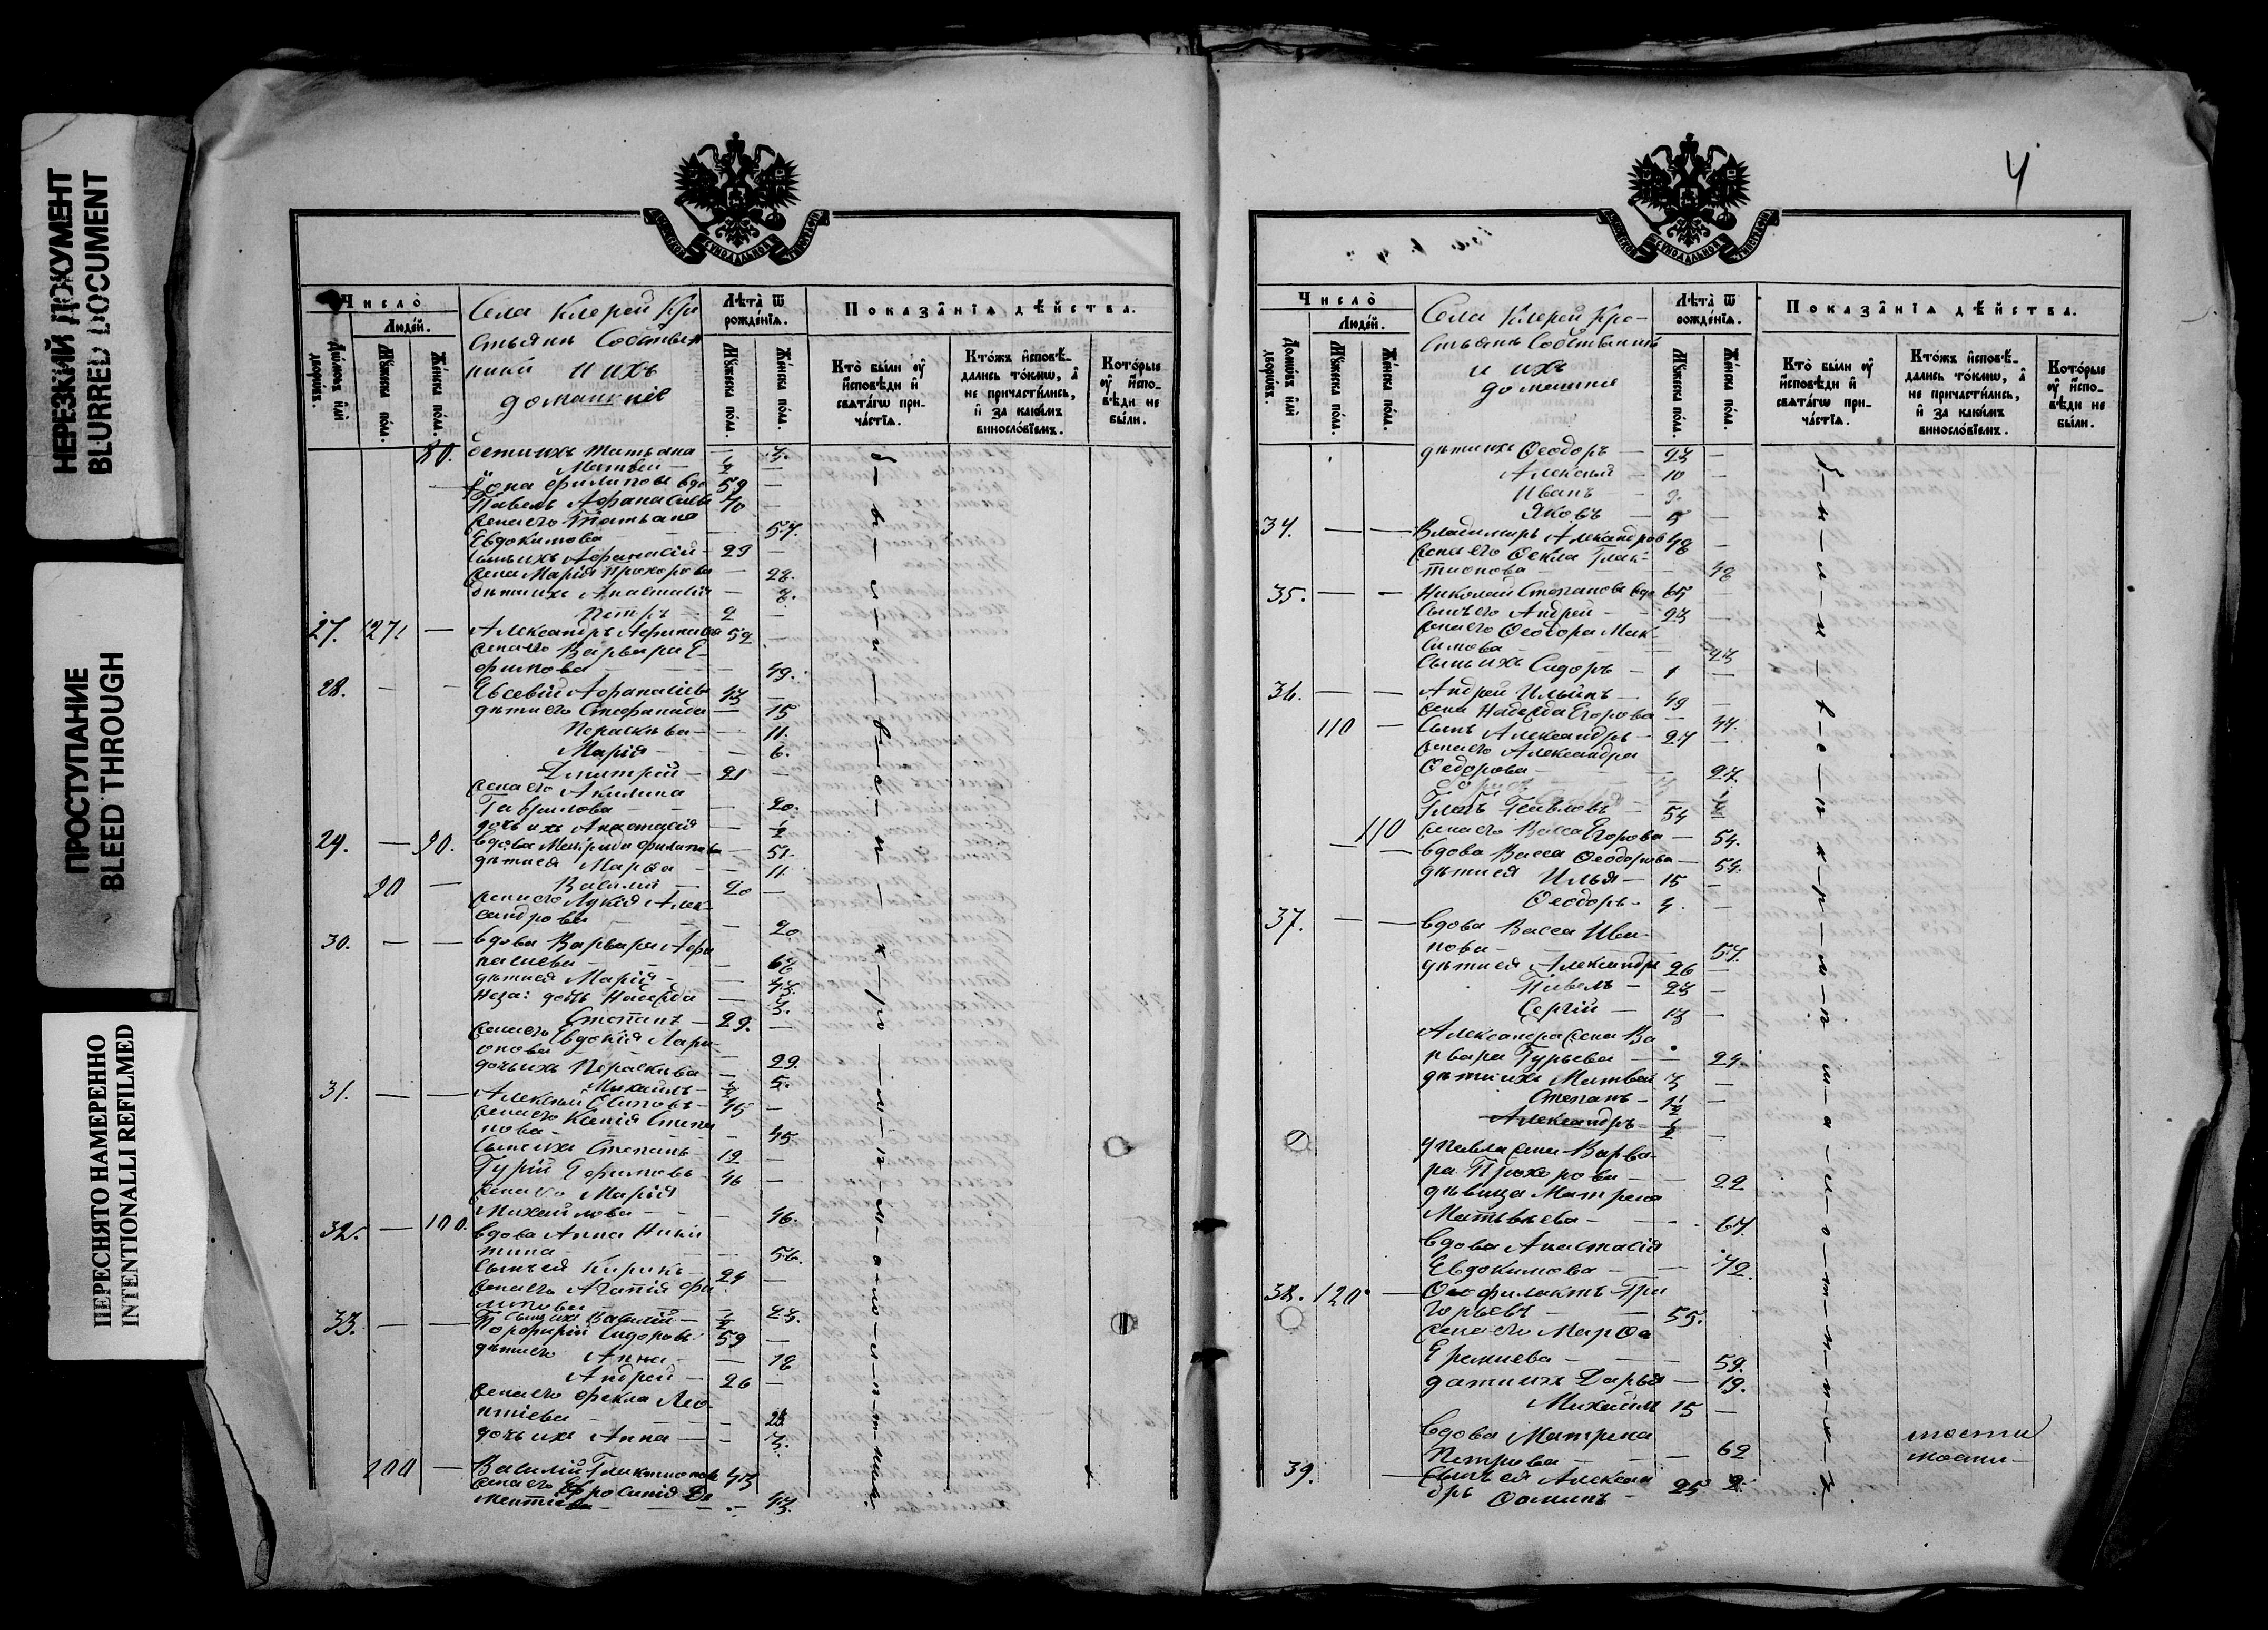 НЕРЕЗКИЙ ДОКУМЕНТ
BLURRED DOCUMENT
ПРОСТУПАНИЕ
BLEED THROUGH
ПЕРЕСНЯТО НАМЕРЕННО
INTENTIONALLI REFILMED
Число̀
Людей.
Домовъ или дворовъ.
Мужеска пола.
Женска пола.
Села Клерей Кре
стьяне Собствен
ники и ихъ
домашніе
Лѣта ѿ рожденїѧ.
Мужеска пола.
Женска пола.
Показанїѧ дѣйства.
Кто были оу
исповѣди и
свѧтагѡ при-
частїѧ.
Ктожъ исповѣ-
дались токмѡ, а
не причастились,
и за какимъ
винословїемъ.
Которые
оу испо-
вѣди не
были.
80. дети ихъ Татьяна — 3.
Матвей — ½ —
Іона Филиповъ вдо 59 —
Павелъ Афанасьевъ 70 —
жена его Татьяна
Евдокимова — 57.
сынъ ихъ Афанасій — 29 —
жена Марія Прохорова — 28.
дѣти ихъ Анастасія — 8.
Петръ — 2 —
27. Александръ Афанасье 52
жена его Варвара Е-
фимова — 49.
28. — — Евсевій Афанасьевъ 43 —
дѣти его Стефанида — 15
Параскева — 11.
Марія — 6.
Дмитрій — 21 —
жена его Акилина
Гаврилова — 20.
дочь ихъ Анастасія — ½
29. — 90. вдова Матрида Филипова — 51.
дѣти ея Марѳа — 11
90 — Василій — 20 —
жена его Лукія Алек-
сандрова — 20
30. — — вдова Варвара Афа
насиева — 68
дѣти ея Марія — 43.
неза: дочь Надежда — 3.
Степанъ — 29. —
жена его Евдокія Лари-
онова — 29.
дочь ихъ Параскева — 5.
Михаилъ — ½
31. — — Алексѣй Осиповъ — 45 —
жена его Ксенія Степа
нова — 45
сынъ ихъ Степанъ — 12 —
Гурій Ефимовъ — 46 —
жена его Марія
Михайлова — 46.
32. — 100. вдова Анна Ники
тина — 56.
сынъ ея Кирикъ — 24 —
жена его Агапія Фи
липова — 23.
сынъ ихъ Василій — ½
33. — — Порфирій Сидоровъ 59 —
дѣти его Анна — 18
Андрей — 26 —
жена его Фекла Лео-
нтіева — 28
дочь ихъ Анна — 3.
100 — Василій Галактіоновъ 43
жена его Ефросинія Де
ментіева — 43.
4
Число̀
Людей.
Домовъ или дворовъ.
Мужеска пола.
Женска пола.
Села Клерей Кре-
стьяне Собственники
и ихъ
домашніе
Лѣта ѿ рожденїѧ.
Мужеска пола.
Женска пола.
Показанїѧ дѣйства.
Кто были оу
исповѣди и
свѧтагѡ при-
частїѧ.
Ктожъ исповѣ-
дались токмѡ, а
не причастились,
и за какимъ
винословїемъ.
Которые
оу испо-
вѣди не
были.
дѣти ихъ Ѳеодоръ — 23 —
Алексѣй — 10 —
Иванъ — 9. —
Яковъ — 5 —
34. — — Владимиръ Александров 48 —
жена его Ѳекла Галак-
тионова — 48
35. — — Николай Степановъ вдо 65 —
сынъ его Андрей — 23 —
жена его Ѳеодора Мак-
симова — 23
сынъ ихъ Сидоръ — 1 —
36. — — Андрей Ильинъ — 49 —
жена Надежда Егорова — 44.
110 — сынъ Александръ — 27 —
жена его Александра
Ѳедорова — 27.
Глѣбъ Павловъ — 54
110 жена его Васса Егорова — 54.
— — вдова Васса Ѳеодорова — 54.
дѣти ея Илья — 15 —
Ѳеодоръ — 4. —
37. — — вдова Васса Ива-
нова — 57.
дѣти ея Александръ 26 —
Павелъ — 23 —
Сергій — 13 —
Александра жена Ва
рвара Гурьева — 24.
дѣти ихъ Матвей 3 —
Степанъ — 1½ —
Александръ — ½ —
у Павла жена Варва-
ра Прохорова — 22
дѣвица Матрена
Матвѣева — 67.
вдова Анастасія
Евдокимова — 72.
38. 120 — Ѳеофилактъ Гри
горьевъ — 55.
жена его Марѳа
Еремиева — 59.
дѣти ихъ Дарья — 19.
Михаилъ 15 —
вдова Матрена
Петрова — 62
39. — сынъ ея Алексан
дръ Ѳоминъ — 25